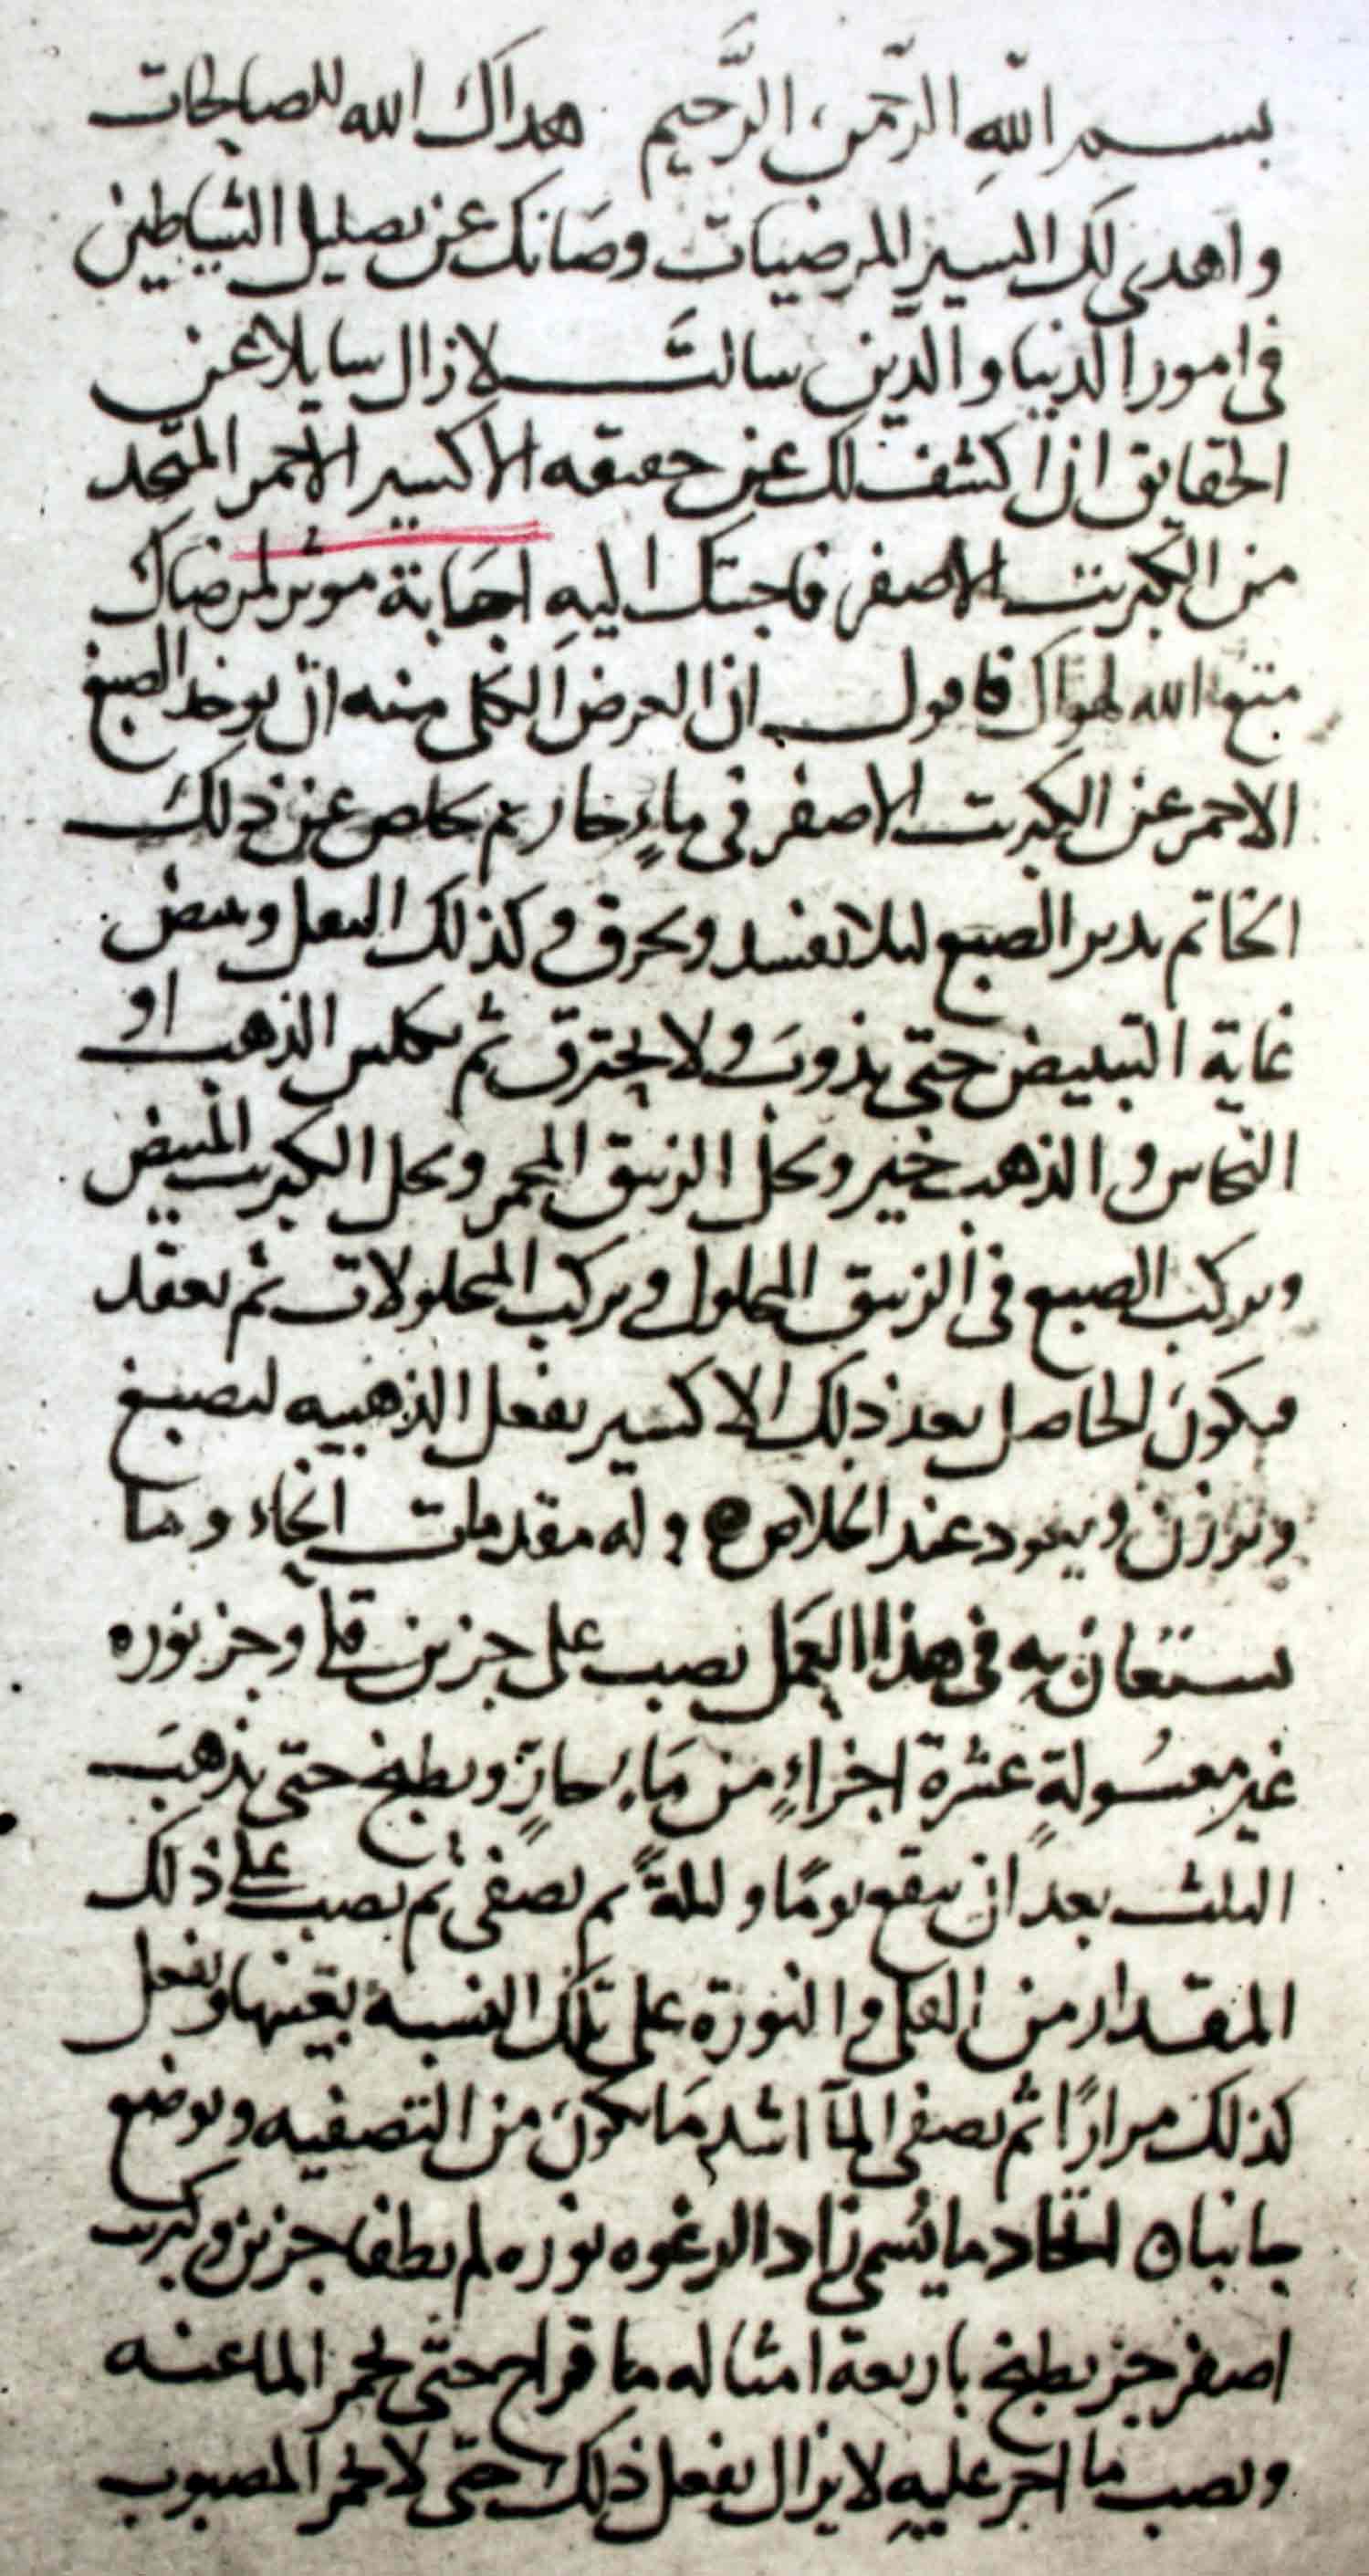 بسم اللهِ الرّحمن الرَّحيم هداك الله للصالحات
واهدى لك السير المرضيات وصَانك عن تضليل الشياطين
فى امور الدنيا والدّين سالتَ لازال سايلا عن
الحقايق ان اكشف لك عن حقيقه الاكسير الاحمر المتخد
من الكبريت الاصفر فاجبتك اليهِ اجَابة موثر لمرضاك
متبع الله لهواك فاقول ان الغرض الكلى منه ان يوخد الصبغ
الاحمر عن الكبريت الاصفر فى ماءٍ حار ثم عن ذلك
ثم يدبر الصبغ ليلا يفسد ويحرق وكذلك الثفل ويبيض
غاية التبييض حتى يذوبَ ولا يحترق ثم يكلس الذهب او
النحاس والذهب خير ويحل الزيبق المحمر ويحل الكبريت المبيض
ويركب الصبغ فى الزيبق المحلول ويركب المحلولات ثم يعقد
فيكونَ الحاصل بعد ذلك الاكسير يفعل الذهبيه ليصبغ
ويرزن ويعود عند الخلاص وله مقدمات وما
يستعان بهِ فى هذا العَمل يصب على جزين قلى وجز نوره
غير مغسُولةٍ عشرة اجزاءٍ من مَاءٍ حارٍّ ويطبخ حتى يذهبَ
الثلث بعد ان ينقع يومًا وليلةً ثم يصفى ثم يصب على ذلك
المقدار من القلى والنورة على تلك النسبة بعينها ويفعل
كذلك مرارًا ثم يصفى المآ اشد مَا يكونَ من التصفيه ويوضع
جانبا اتخاد ما يسُمى الرغوه نوره لم يطفا جزين وكبريت
اصفر جز يطبخ باربعة امثاله ما قراح حتى يحمر الما عنه
ويصب ما اخر عليهِ لا يزال يفعل ذلك حتى لا يحمر المصبوب